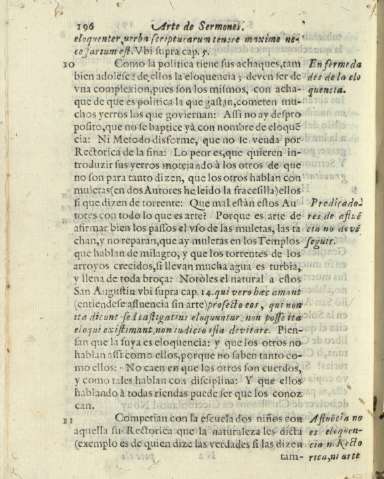 196 Arte de Sermones.
eloquenter, verba scripturarum tensere maximè ne-
cessarium est. Vbi supra cap. 5.
20 Como la politica tiene sus achaques, tam
bien adolesce de ellos la eloquencia y deven ser de
vna complexion, pues son los mismos, con acha-
que de que es politica la que gastan, cometen mu-
chos yerros los que goviernan: Assi no ay despro
posito, que no se baptice yà con nombre de eloquē
cia: Ni Metodo disforme, que no se venda por
Rectorica de la fina: Lo peor es, que quieren in-
troducir sus yerros motejando à los otros de que
no son para tanto dizen, que los otros hablan con
muletas (en dos Autores he leido la fracesilla) ellos
si que dizen de torrente: Que mal estàn estos Au
tores con todo lo que es arte? Porque es arte de
afirmar bien los passos el vso de las muletas, las ta
chan, y no reparan, que ay muletas en los Templos
que hablan de milagro, y que los torrentes de los
arroyos crecidos, si llevan mucha agua es turbia,
y llena de toda broça: Notòles el natural a estos
San Augustin vbi supra cap. 14. qui vero hæc amant
(entiendese afluencia sin arte) profecto eos, qui non
ita dicunt sed castigatius eloquuntur, non posse ita
eloqui existimant, non iudicio ista devitare. Pien-
san que la suya es eloquencia: y que los otros no
hablan assi como ellos, porque no saben tanto co-
mo ellos: No caen en que los otros son cuerdos,
y como tales hablan con disciplina: Y que ellos
hablando à todas riendas puede ser que los conoz
can.
21 Competian con la escuela dos niños con
aquella su Rectorica que la naturaleza les dicta
(exemplo es de quien dize las verdades si las dizen
tam-
Enfermeda
des de la elo
quencia.
Predicado-
res de afluē
cia no devē
seguir.
Afluēcia no
es eloquen-
cia ni Recto
rica, ni arte